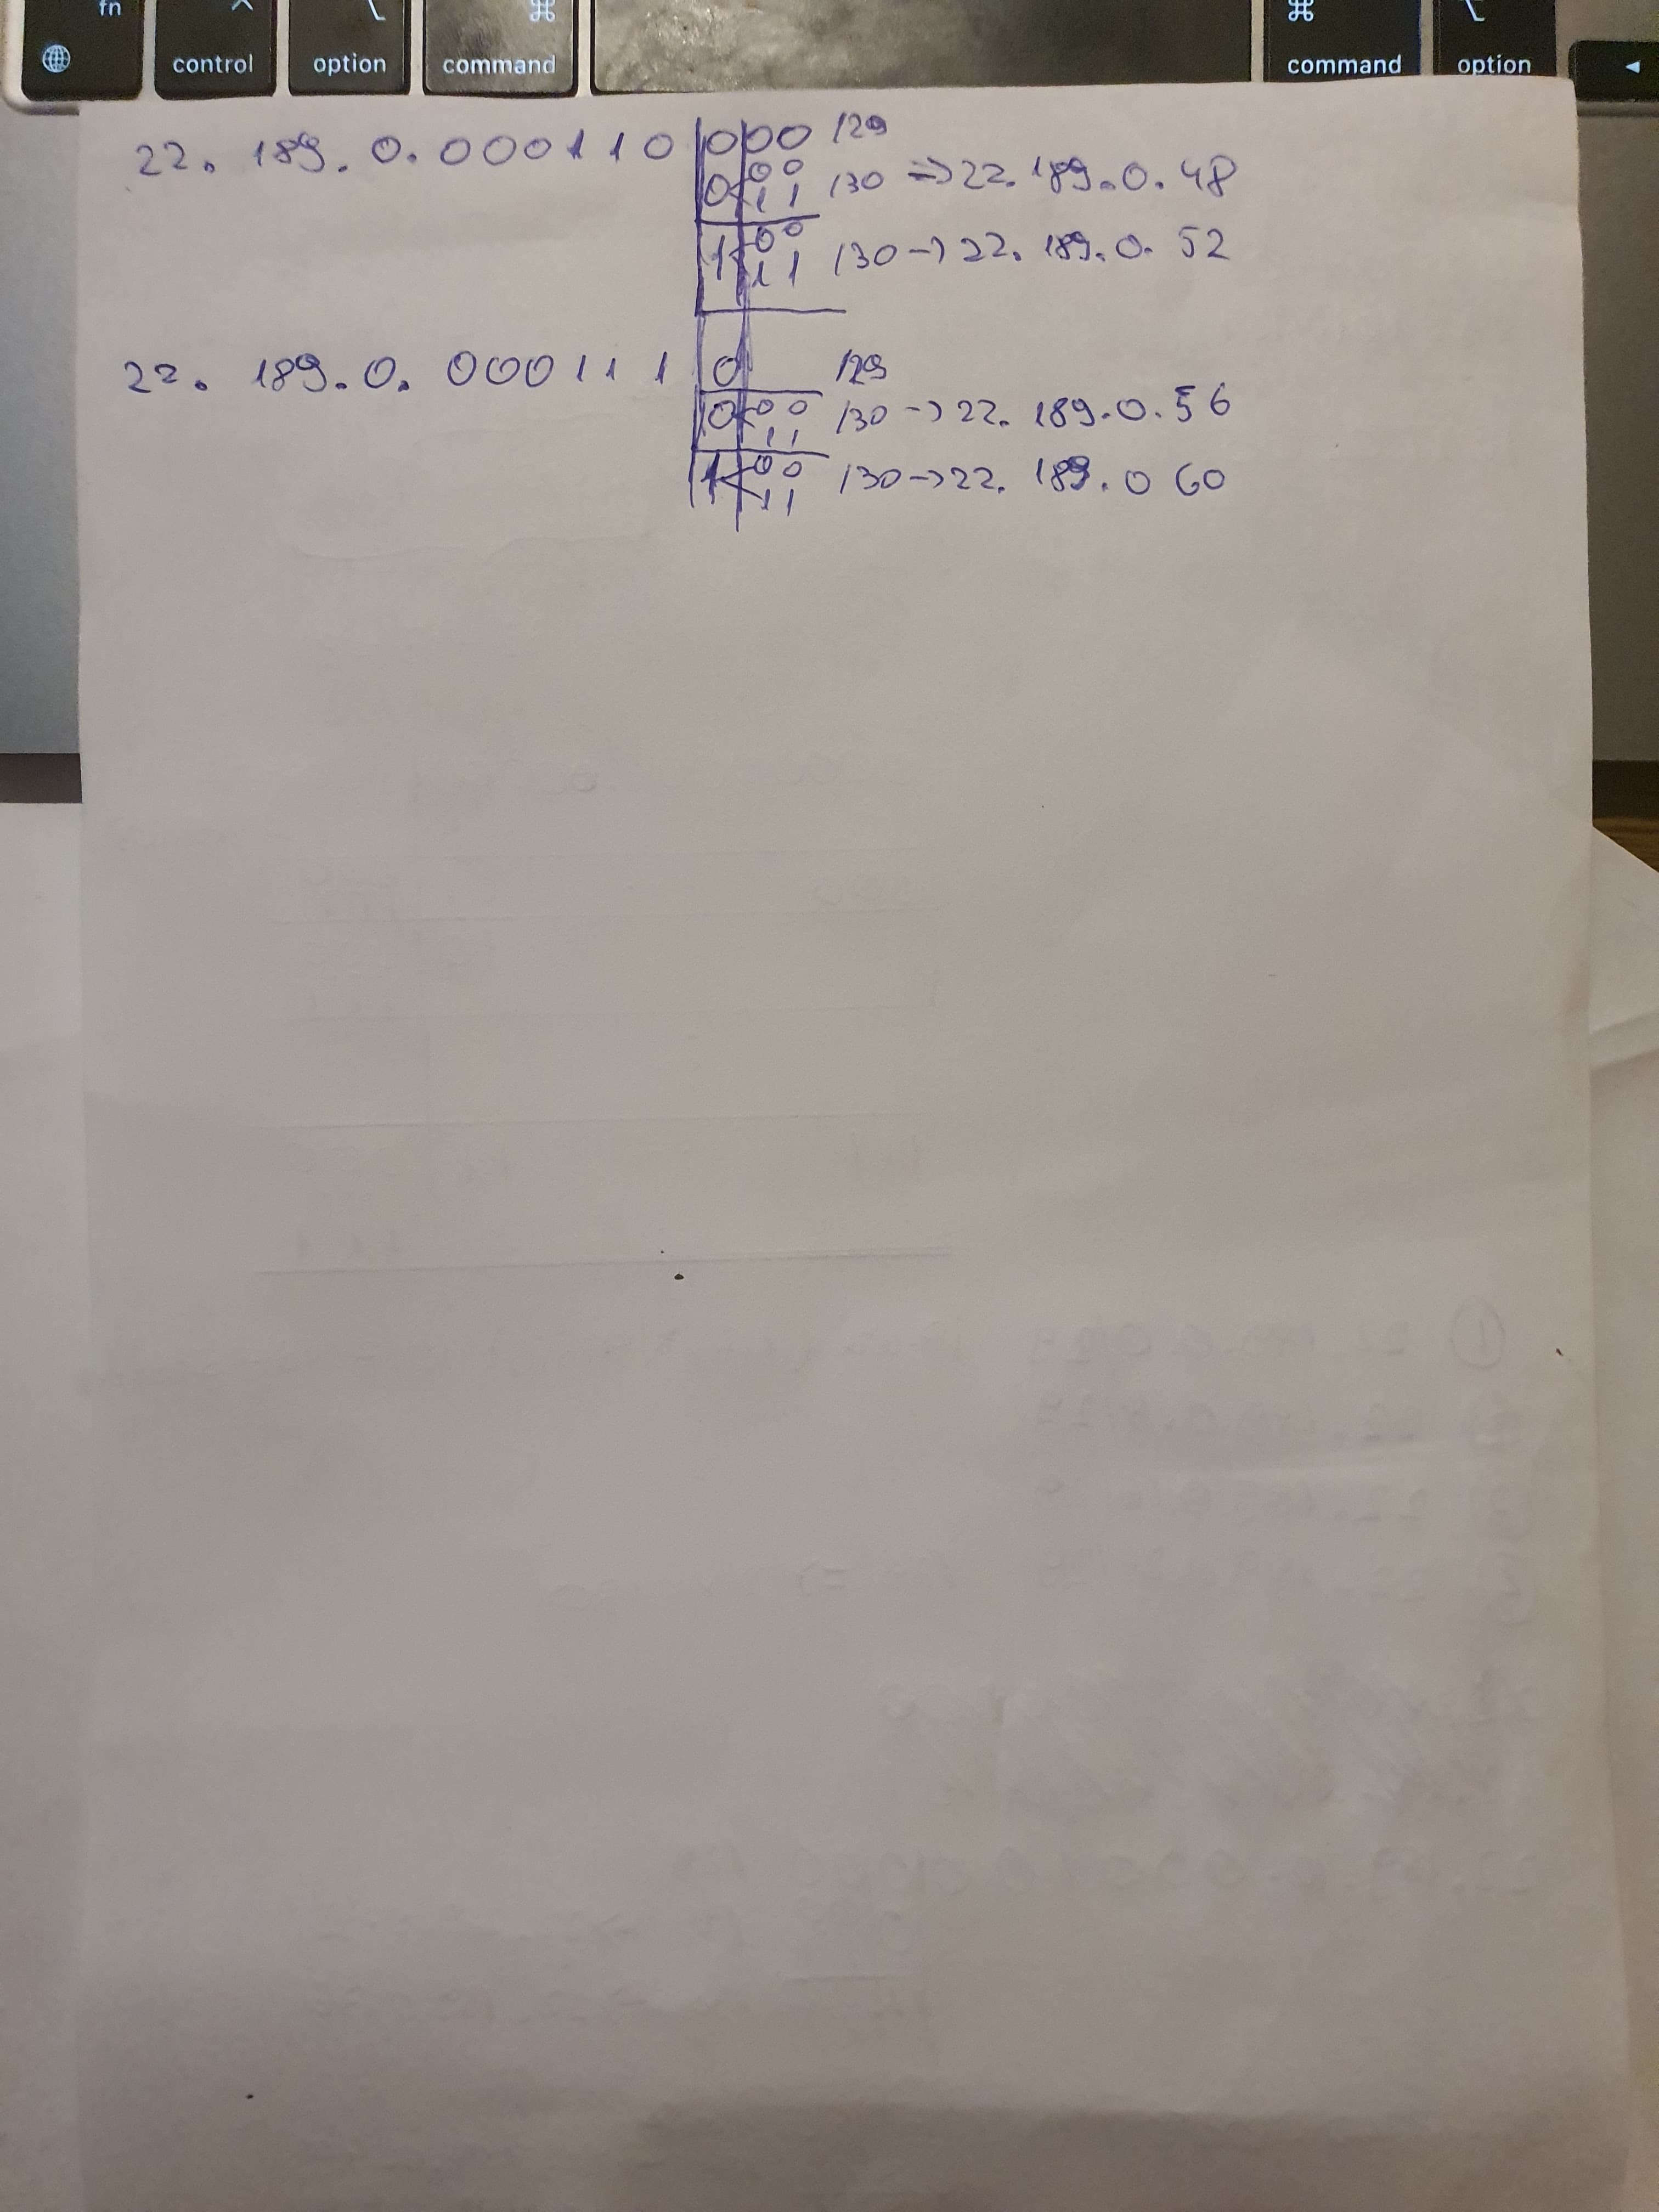 fn ^ ⌥ ⌘ ⌘ ⌥
control option command command option ◄
22. 189. 0. 000110 000 /29
0 00 /30 => 22. 189. 0. 48
11
1 00 /30 -> 22. 189. 0. 52
11
22. 189. 0. 000111 0 /29
0 00 /30 -> 22. 189. 0. 56
11
1 00 /30 -> 22. 189. 0 60
11